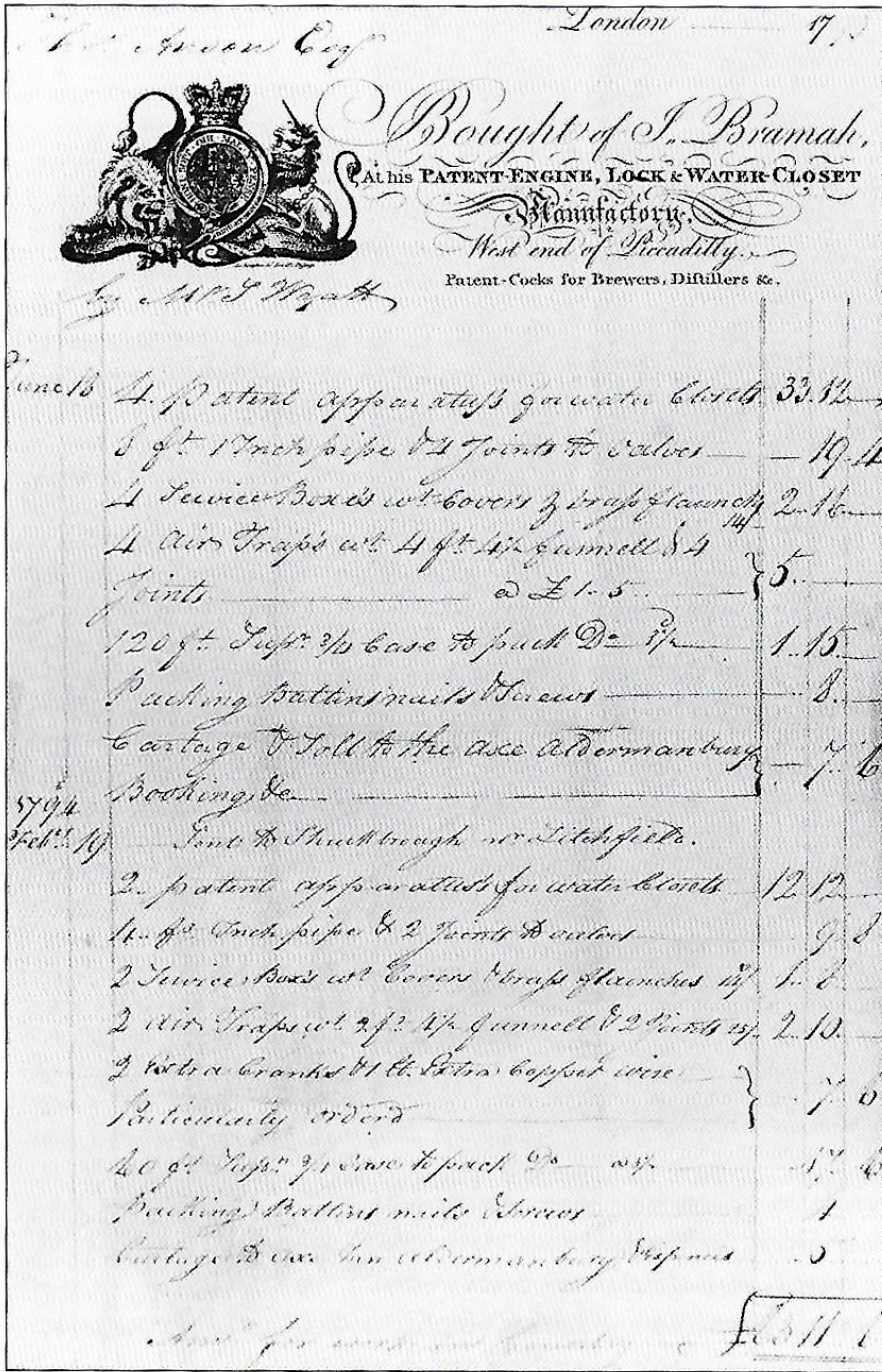 London 17
Anson Esqr
Bought of J. Bramah,
At his PATENT-ENGINE, LOCK & WATER-CLOSET
Manufactory.
West end of Piccadilly.
Patent-Cocks for Brewers, Distillers &c.
by Mr S Wyatt
June 18 4 patent apparatuss for water Closets 33. 12
8 ft 1 Inch pipe & 4 Joints to valves 19. 4
4 Service Boxes wt Covers & brass flaunches 14/ 2. 16
4 Air Traps wt 4 ft 4 funnell & 4
Joints a £1. 5 5
120 ft Supr 3/4 Case to pack Do 1. 15
Packing Battins nails & Screws 8.
Cartage & Toll to the axe Aldermanbury
Booking &c 7. 6
1794
Feby 19 Sent to Shuckbrough nr Litchfield.
2 patent apparatuss for water Closets 12 12
4 ft Inch pipe & 2 Joints to valves 9. 8
2 Service Boxs wt Covers & brass flaunches 14/ 1. 8
2 Air Traps wt 2 ft 4 funnell & 2 Joints 25/ 2. 10
2 extra Cranks & 1 lt. Extra Copper wire
Particularly orderd 7 6
60 ft Supr 3/4 Case to pack Do 17. 6
Packing Battins nails & Screws 4
Cartage to axe Inn Aldermanbury
for